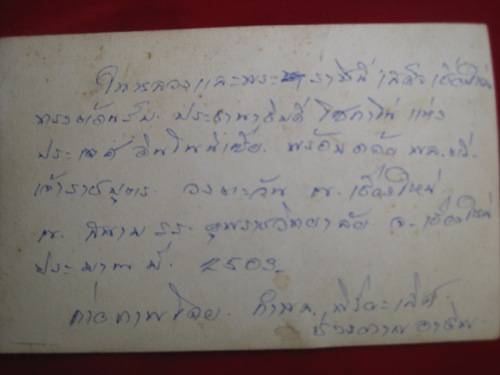 ในหลวงและพระราชินี เสด็จเชียงใหม่
ทรงต้อนรับ ประธานาธิบดี โซการ์โน แห่ง
ประเทศอินโดนีเซีย พร้อมด้วย พล.ต.
เจ้าราชบุตร วงษตวัน ณ เชียงใหม่
ณ สนาม รร. ยุพราชวิทยาลัย จ. เชียงใหม่
ประมาณ ปี. 2503
ถ่ายภาพโดย.
ช่างภาพอาชีพ